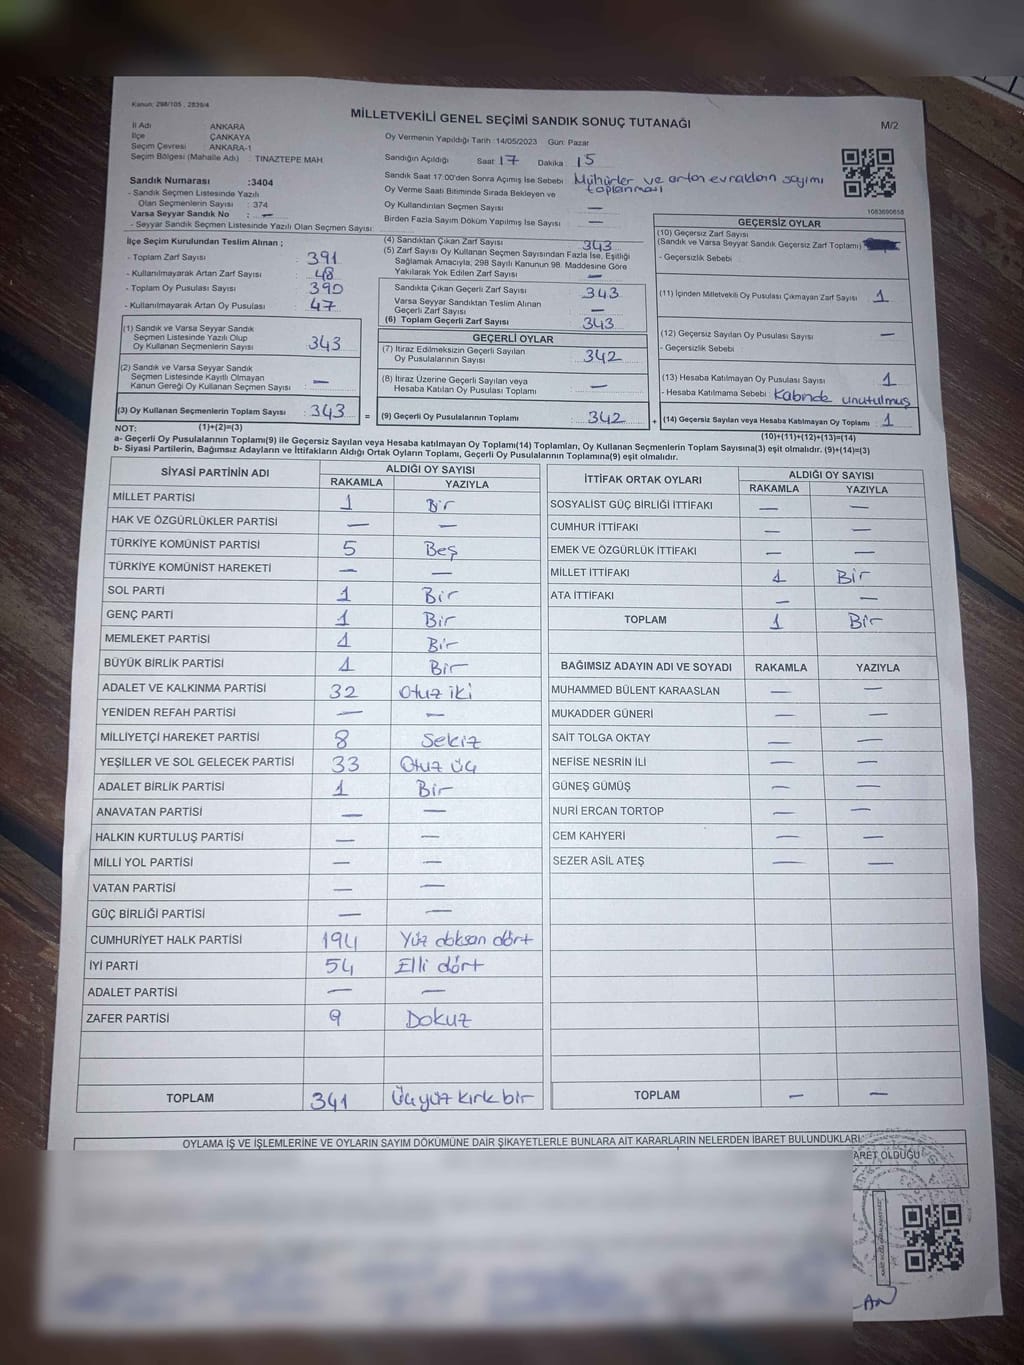 Kanun: 298/105 , 2839/4
MİLLETVEKİLİ GENEL SEÇİMİ SANDIK SONUÇ TUTANAĞI
M/2
İl Adı ANKARA
İlçe ÇANKAYA
Seçim Çevresi : ANKARA-1
Seçim Bölgesi (Mahalle Adı) : TINAZTEPE MAH
Sandık Numarası :3404
- Sandık Seçmen Listesinde Yazılı
Olan Seçmenlerin Sayısı : 374
Varsa Seyyar Sandık No : —
- Seyyar Sandık Seçmen Listesinde Yazılı Olan Seçmen Sayısı:
Oy Vermenin Yapıldığı Tarih :14/05/2023 Gün: Pazar
Sandığın Açıldığı Saat 17 Dakika 15
Sandık Saat 17:00'den Sonra Açımış İse Sebebi: Mühürler ve artan evrakların sayımı
toplanması
Oy Verme Saati Bitiminde Sırada Bekleyen ve
Oy Kullandırılan Seçmen Sayısı : —
Birden Fazla Sayım Döküm Yapılmış İse Sayısı : —
1083690658
İlçe Seçim Kurulundan Teslim Alınan ;
- Toplam Zarf Sayısı : 391
- Kullanılmayarak Artan Zarf Sayısı : 48
- Toplam Oy Pusulası Sayısı : 390
- Kullanılmayarak Artan Oy Pusulası : 47
(1) Sandık ve Varsa Seyyar Sandık
Seçmen Listesinde Yazılı Olup
Oy Kullanan Seçmenlerin Sayısı : 343
(2) Sandık ve Varsa Seyyar Sandık
Seçmen Listesinde Kayıtlı Olmayan
Kanun Gereği Oy Kullanan Seçmen Sayısı : —
(3) Oy Kullanan Seçmenlerin Toplam Sayısı : 343 =
(4) Sandıktan Çıkan Zarf Sayısı : 343
(5) Zarf Sayısı Oy Kullanan Seçmen Sayısından Fazla İse, Eşitliği
Sağlamak Amacıyla, 298 Sayılı Kanunun 98. Maddesine Göre
Yakılarak Yok Edilen Zarf Sayısı : —
Sandıkta Çıkan Geçerli Zarf Sayısı : 343
Varsa Seyyar Sandıktan Teslim Alınan
Geçerli Zarf Sayısı : —
(6) Toplam Geçerli Zarf Sayısı : 343
GEÇERLİ OYLAR
(7) İtiraz Edilmeksizin Geçerli Sayılan
Oy Pusulalarının Sayısı : 342
(8) İtiraz Üzerine Geçerli Sayılan veya
Hesaba Katılan Oy Pusulası Toplamı : —
(9) Geçerli Oy Pusulalarının Toplamı : 342 +
GEÇERSİZ OYLAR
(10) Geçersiz Zarf Sayısı
(Sandık ve Varsa Seyyar Sandık Geçersiz Zarf Toplamı)
- Geçersizlik Sebebi
(11) İçinden Milletvekili Oy Pusulası Çıkmayan Zarf Sayısı : 1
(12) Geçersiz Sayılan Oy Pusulası Sayısı : —
- Geçersizlik Sebebi
(13) Hesaba Katılmayan Oy Pusulası Sayısı : 1
- Hesaba Katılmama Sebebi : Kabinde unutulmuş
(14) Geçersiz Sayılan veya Hesaba Katılmayan Oy Toplamı : 1
NOT: (1)+(2)=(3) (10)+(11)+(12)+(13)=(14)
a- Geçerli Oy Pusulalarının Toplamı(9) ile Geçersiz Sayılan veya Hesaba katılmayan Oy Toplamı(14) Toplamları, Oy Kullanan Seçmenlerin Toplam Sayısına(3) eşit olmalıdır. (9)+(14)=(3)
b- Siyasi Partilerin, Bağımsız Adayların ve İttifakların Aldığı Ortak Oyların Toplamı, Geçerli Oy Pusulalarının Toplamına(9) eşit olmalıdır.
SİYASİ PARTİNİN ADI ALDIĞI OY SAYISI
RAKAMLA YAZIYLA
MİLLET PARTİSİ 1 Bir
HAK VE ÖZGÜRLÜKLER PARTİSİ — —
TÜRKİYE KOMÜNİST PARTİSİ 5 Beş
TÜRKİYE KOMÜNİST HAREKETİ — —
SOL PARTİ 1 Bir
GENÇ PARTİ 1 Bir
MEMLEKET PARTİSİ 1 Bir
BÜYÜK BİRLİK PARTİSİ 1 Bir
ADALET VE KALKINMA PARTİSİ 32 Otuz iki
YENİDEN REFAH PARTİSİ — —
MİLLİYETÇİ HAREKET PARTİSİ 8 Sekiz
YEŞİLLER VE SOL GELECEK PARTİSİ 33 Otuz üç
ADALET BİRLİK PARTİSİ 1 Bir
ANAVATAN PARTİSİ — —
HALKIN KURTULUŞ PARTİSİ — —
MİLLİ YOL PARTİSİ — —
VATAN PARTİSİ — —
GÜÇ BİRLİĞİ PARTİSİ — —
CUMHURİYET HALK PARTİSİ 194 Yüz doksan dört
İYİ PARTİ 54 Elli dört
ADALET PARTİSİ — —
ZAFER PARTİSİ 9 Dokuz
TOPLAM 341 Üçyüz kırk bir
İTTİFAK ORTAK OYLARI ALDIĞI OY SAYISI
RAKAMLA YAZIYLA
SOSYALİST GÜÇ BİRLİĞİ İTTİFAKI — —
CUMHUR İTTİFAKI — —
EMEK VE ÖZGÜRLÜK İTTİFAKI — —
MİLLET İTTİFAKI 1 Bir
ATA İTTİFAKI — —
TOPLAM 1 Bir
BAĞIMSIZ ADAYIN ADI VE SOYADI RAKAMLA YAZIYLA
MUHAMMED BÜLENT KARAASLAN — —
MUKADDER GÜNERİ — —
SAİT TOLGA OKTAY — —
NEFİSE NESRİN İLİ — —
GÜNEŞ GÜMÜŞ — —
NURİ ERCAN TORTOP — —
CEM KAHYERİ — —
SEZER ASİL ATEŞ — —
TOPLAM — —
OYLAMA İŞ VE İŞLEMLERİNE VE OYLARIN SAYIM DÖKÜMÜNE DAİR ŞİKAYETLERLE BUNLARA AİT KARARLARIN NELERDEN İBARET BULUNDUKLARI
ARET OLDUĞU